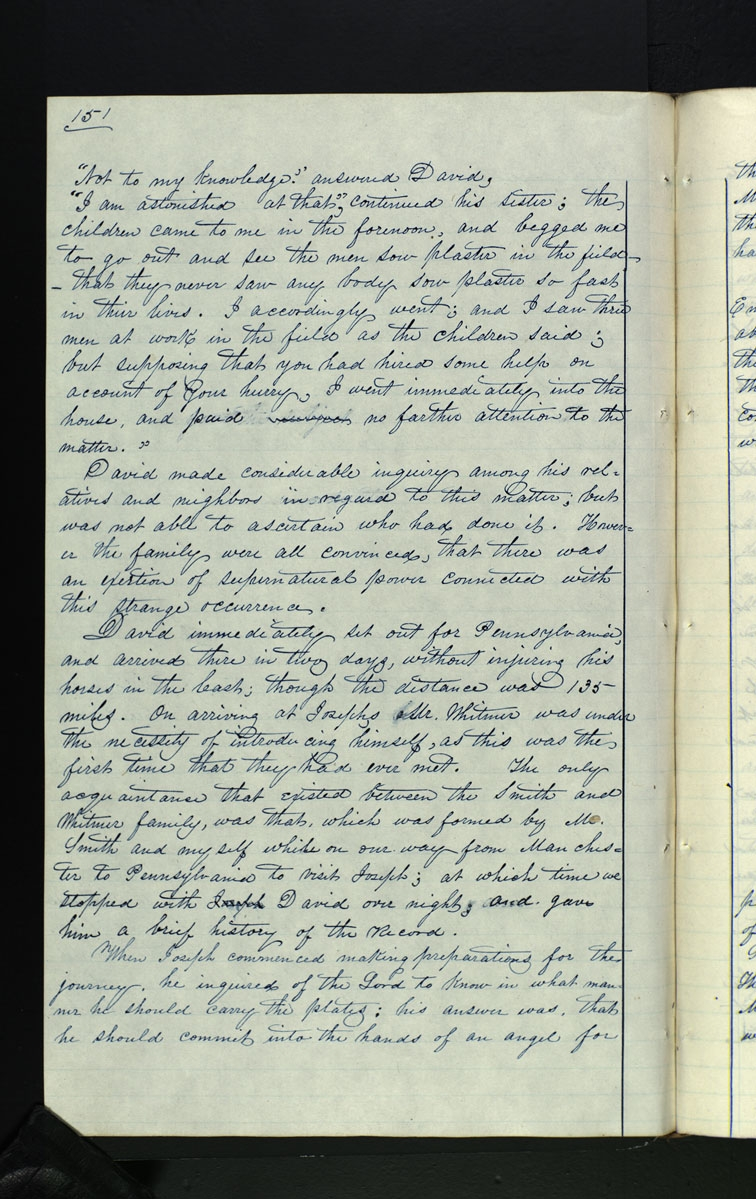 151
"Not to my knowledge." answered David,
"I am astonished at that", continued his sister; the
children came to me in the forenoon, and begged me
to go out and see the men sow plaster in the field-
- that they never saw any body sow plaster so fast
in their lives. I accordingly went; and I saw three
men at work in the field as the children said;
but supposing that you had hired some help on
account of your hurry, I went immediately into the
house, and paid no farther attention to the
matter."
David made considerable inquiry among his rel=
atives and neighbors in regard to this matter; but
was not able to ascertain who had done it. Howev=
er the family were all convinced, that there was
an exertion of supernatural power connected with
this strange occurrence.
David immediately set out for Pennsylvania,
and arrived there in two days, without injuring his
horses in the least; though the distance was 135
miles. On arriving at Josephs Mr. Whitmer was under
the necessity of introducing himself, as this was the
first time that they had ever met. The only
acquaintance that existed between the Smith and
Whitmer family, was that, which was formed by Mr.
Smith and myself while on our way from Manches=
ter to Pennsylvania to visit Joseph; at which time we
stopped with Joseph David over night; and gave
him a brief history of the Record.
When Joseph commenced making preparations for the
journey, he inquired of the Lord to know in what man-
ner he should carry the plates; his answer was, that
he should commit into the hands of an angel for